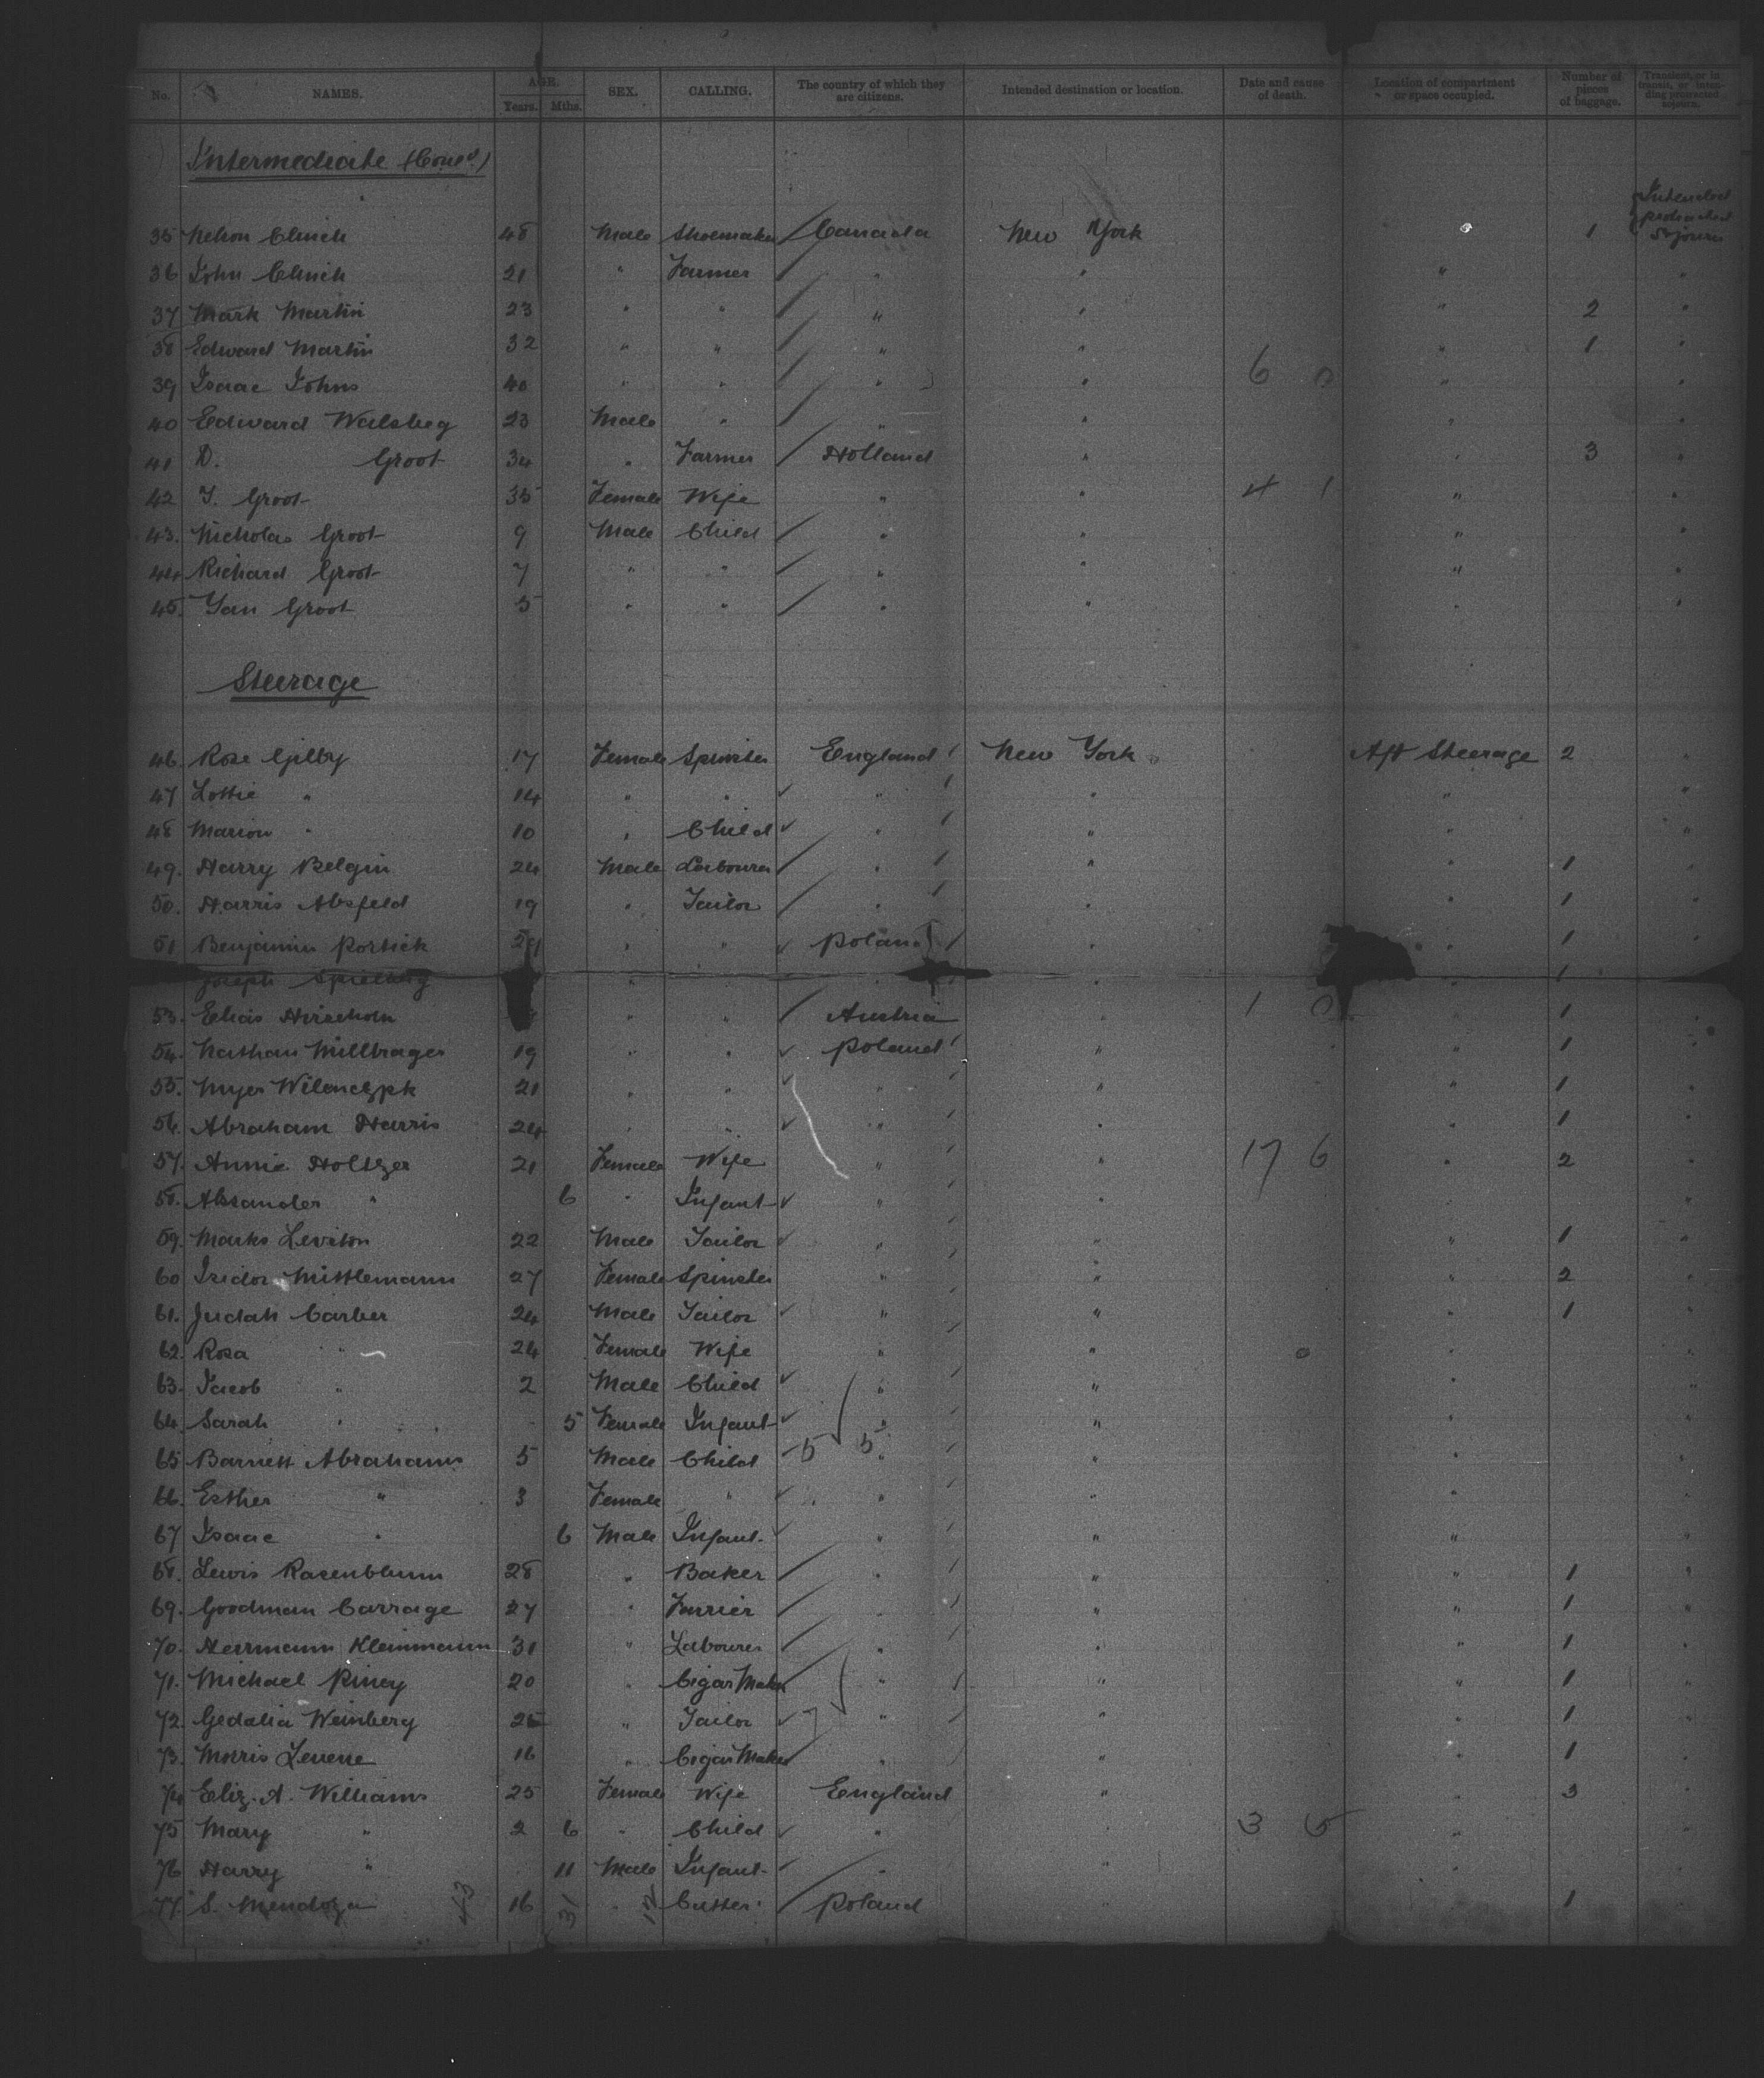 No. NAMES. AGE. Years. Mths. SEX. CALLING. The country of which they are citizens. Intended destination or location. Date and cause of death. Location of compartment or space occupied. Number of pieces of baggage. Transient, or in transit, or intending protracted sojourn.
Intermediate (Con^d.)
35 Nelson Clinch 48 Male Shoemaker Canada New York 1 Intended protracted Sojourn
36 John Clinch 21 " Farmer " " " "
37 Mark Martin 23 " " " " " 2 "
38 Edward Martin 32 " " " " " 1 "
39 Isaac Johns 40 " " " " 6 0 " "
40 Edward Walsbeg 23 Male " " " " "
41 D. Groot 34 " Farmer Holland " " 3 "
42 J. Groot 35 Female Wife " " 4 1 " "
43. Nicholas Groot 9 Male Child " " " "
44 Richard Groot 7 " " " " " "
45. Jan Groot 5 " " " " " "
Steerage
46. Rose Gilby 17 Female Spinster England New York Aft Steerage 2 "
47 Lottie " 14 " " " " " "
48 Marion " 10 " Child " " " "
49. Harry Belgin 24 Male Labourer " " " 1 "
50. Harris Absfeld 19 " Tailor " " " 1 "
51 Benjamin Portick " " Poland " " 1 "
Joseph Spielberg " " " 1
53. Elias " " Austria " 1 0 " 1 "
54. Nathan Millbrager 19 " " Poland " " 1 "
55. Myer Wilenczyk 21 " " " " " 1 "
56. Abraham Harris 24 " " " " " 1 "
57. Annie Holtzer 21 Female Wife " " 17 6 " 2 "
58. Alexander " 6 " Infant " " " "
59. Marks Leviton 22 Male Tailor " " " 1 "
60 Isidor Mittlemann 27 Female Spinster " " " 2 "
61. Judah Carber 24 Male Tailor " " " 1 "
62. Rosa " 24 Female Wife " " " "
63. Jacob " 2 Male Child " " " "
64. Sarah " 5 Female Infant " " " "
65 Barnett Abrahams 5 Male Child 5 5 " " " "
66. Esther " 3 Female " " " " "
67 Isaac " 6 Male Infant. " " " "
68. Lewis Rasenblum 28 " Baker " " " 1 "
69. Goodman Carrage 27 " Furrier " " " 1 "
70. Herrmann Kleinmann 31 " Labourer " " " 1 "
71. Michael Piney 20 " Cigar Maker " " " 1 "
72. Gedalia Weinberg 25 " Tailor 7 " " " 1 "
73. Morris Levene 16 " Cigar Maker " " " 1 "
74 Eliz. A. Williams 25 Female Wife England " " 3 "
75 Mary " 2 6 " Child " " 3 5 " "
76 Harry " 11 Male Infant " " " "
77. S. Mendoza 43 16 31 " 12 Cutter Poland " 1